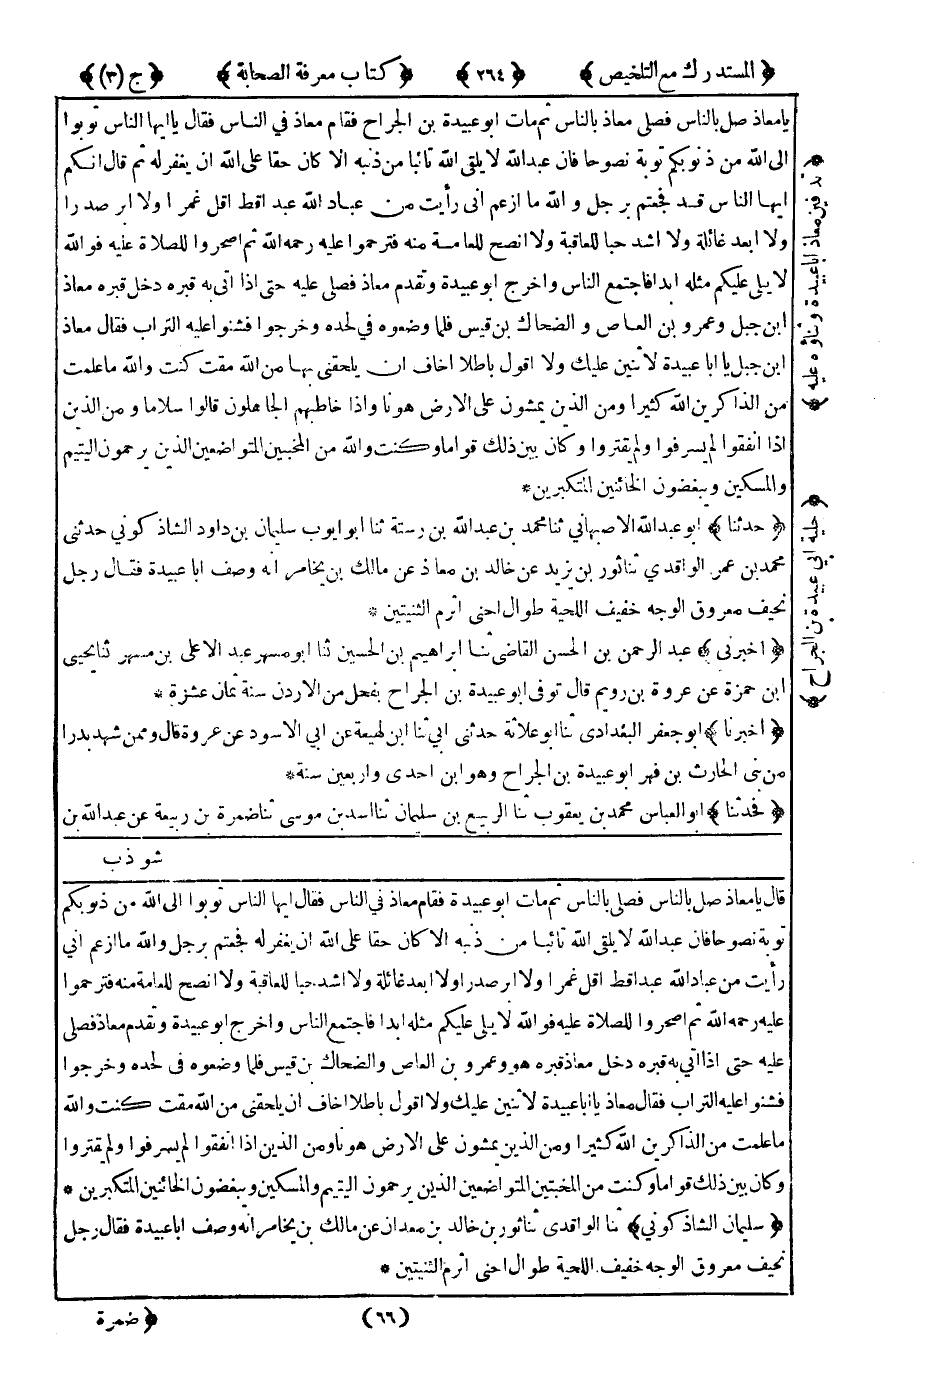 ﴿ المستدرك مع التلخيص ﴾ ﴿ ٢٦٤ ﴾ ﴿ كتاب معرفة الصحابة ﴾ ﴿ ج (٣) ﴾
يا معاذ صل بالناس فصلى معاذ بالناس ثم مات ابو عبيدة بن الجراح فقام معاذ في الناس فقال يا ايها الناس توبوا
الى الله من ذنوبكم توبة نصوحا فان عبدالله لا يلقى الله تائبا من ذنبه الا كان حقا على الله ان يغفر له ثم قال انكم
ايها الناس قد فجعتم برجل و الله ما ازعم انى رأيت من عباد الله عبدا قط اقل غمرا ولا ابر صدرا
ولا ابعد غائلة ولا اشد حبا للعاقبة ولا انصح للعامة منه فترحموا عليه رحمه الله ثم اصحروا للصلاة عليه فوالله
لا يلى عليكم مثله ابدا فاجتمع الناس واخرج ابو عبيدة وتقدم معاذ فصلى عليه حتى اذا اتى به قبره دخل قبره معاذ
ابن جبل وعمرو بن العاص و الضحاك بن قيس فلما وضعوه في لحده وخرجوا فشنوا عليه التراب فقال معاذ
ابن جبل يا ابا عبيدة لا ثنين عليك ولا اقول باطلا اخاف ان يلحقنى بها من الله مقت كنت والله ما علمت
من الذاكرين الله كثيرا ومن الذين يمشون على الارض هونا واذا خاطبهم الجاهلون قالوا سلاما و من الذين
اذا انفقوا لم يسرفوا ولم يقتروا و كان بين ذلك قواما وكنت والله من المخبتين المتواضعين الذين يرحمون اليتيم
والمسكين ويبغضون الخائنين المتكبرين *
﴿ حدثنا ﴾ ابو عبدالله الاصبهاني ثنا محمد بن عبدالله بن رستة ثنا ابو ايوب سليمان بن داود الشاذكوني حدثنى
محمد بن عمر الواقدي ثنا ثور بن يزيد عن خالد بن معاذ عن مالك بن يخامر انه وصف ابا عبيدة فقال رجل
نحيف معروق الوجه خفيف اللحية طوال احنى اثرم الثنيتين *
﴿ اخبرنى ﴾ عبد الرحمن بن الحسن القاضى ثنا ابراهيم بن الحسين ثنا ابو مسهر عبد الاعلى بن مسهر ثنا يحيى
ابن حمزة عن عروة بن رويم قال توفى ابو عبيدة بن الجراح بفحل من الاردن سنة ثمان عشرة *
﴿ اخبرنا ﴾ ابو جعفر البغدادى ثنا ابو علاثة حدثنى ابي ثنا ابن لهيعة عن ابي الاسود عن عروة قال وممن شهد بدرا
من بنى الحارث بن فهر ابو عبيدة بن الجراح وهو ابن احدى واربعين سنة *
﴿ فحدثنا ﴾ ابو العباس محمد بن يعقوب ثنا الربيع بن سليمان ثنا اسد بن موسى ثنا ضمرة بن ربيعة عن عبدالله بن
شوذب
قال يا معاذ صل بالناس فصلى بالناس ثم مات ابو عبيدة فقام معاذ في الناس فقال ايها الناس توبوا الى الله من ذنوبكم
توبة نصوحا فان عبدالله لا يلقى الله تائبا من ذنبه الا كان حقا على الله ان يغفر له فجعتم برجل والله ما ازعم اني
رأيت من عباد الله عبدا قط اقل غمرا ولا ابر صدرا ولا ابعد غائلة ولا اشد حبا للعاقبة ولا انصح للعامة منه فترحموا
عليه رحمه الله ثم اصحروا للصلاة عليه فوالله لا يلى عليكم مثله ابدا فاجتمع الناس واخرج ابو عبيدة وتقدم معاذ فصلى
عليه حتى اذا اتي به قبره دخل معاذ قبره هو وعمرو بن العاص والضحاك بن قيس فلما وضعوه فى لحده وخرجوا
فشنوا عليه التراب فقال معاذ يا ابا عبيدة لا ثنين عليك ولا اقول باطلا اخاف ان يلحقنى من الله مقت كنت والله
ما علمت من الذاكرين الله كثيرا ومن الذين يمشون على الارض هونا ومن الذين اذا انفقوا لم يسرفوا ولم يقتروا
وكان بين ذلك قواما وكنت من المخبتين المتواضعين الذين يرحمون اليتيم والمسكين ويبغضون الخائنين المتكبرين *
﴿ سليمان الشاذكوني ﴾ ثنا الواقدى ثنا ثور بن خالد بن معدان عن مالك بن يخامر انه وصف ابا عبيدة فقال رجل
نحيف معروق الوجه خفيف اللحية طوال احنى اثرم الثنيتين *
(٦٦) ﴿ ضمرة
﴿ تدفين معاذ ابا عبيدة وثناؤه عليه ﴾
﴿ حلية ابي عبيدة بن الجراح ﴾